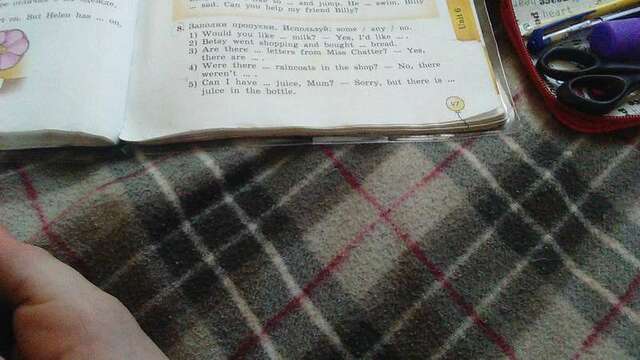 on. But Helen has ... on,
... and jump. He ... swim. Billy
... sad. Can you help my friend Billy?
8. Заполни пропуски. Используй: some / any / no.
1) Would you like ... milk? — Yes, I'd like ... .
2) Betsy went shopping and bought ... bread.
3) Are there ... letters from Miss Chatter? — Yes,
there are ... .
4) Were there ... raincoats in the shop? — No, there
weren't ... .
5) Can I have ... juice, Mum? — Sorry, but there is ...
juice in the bottle.
47
Unit 6